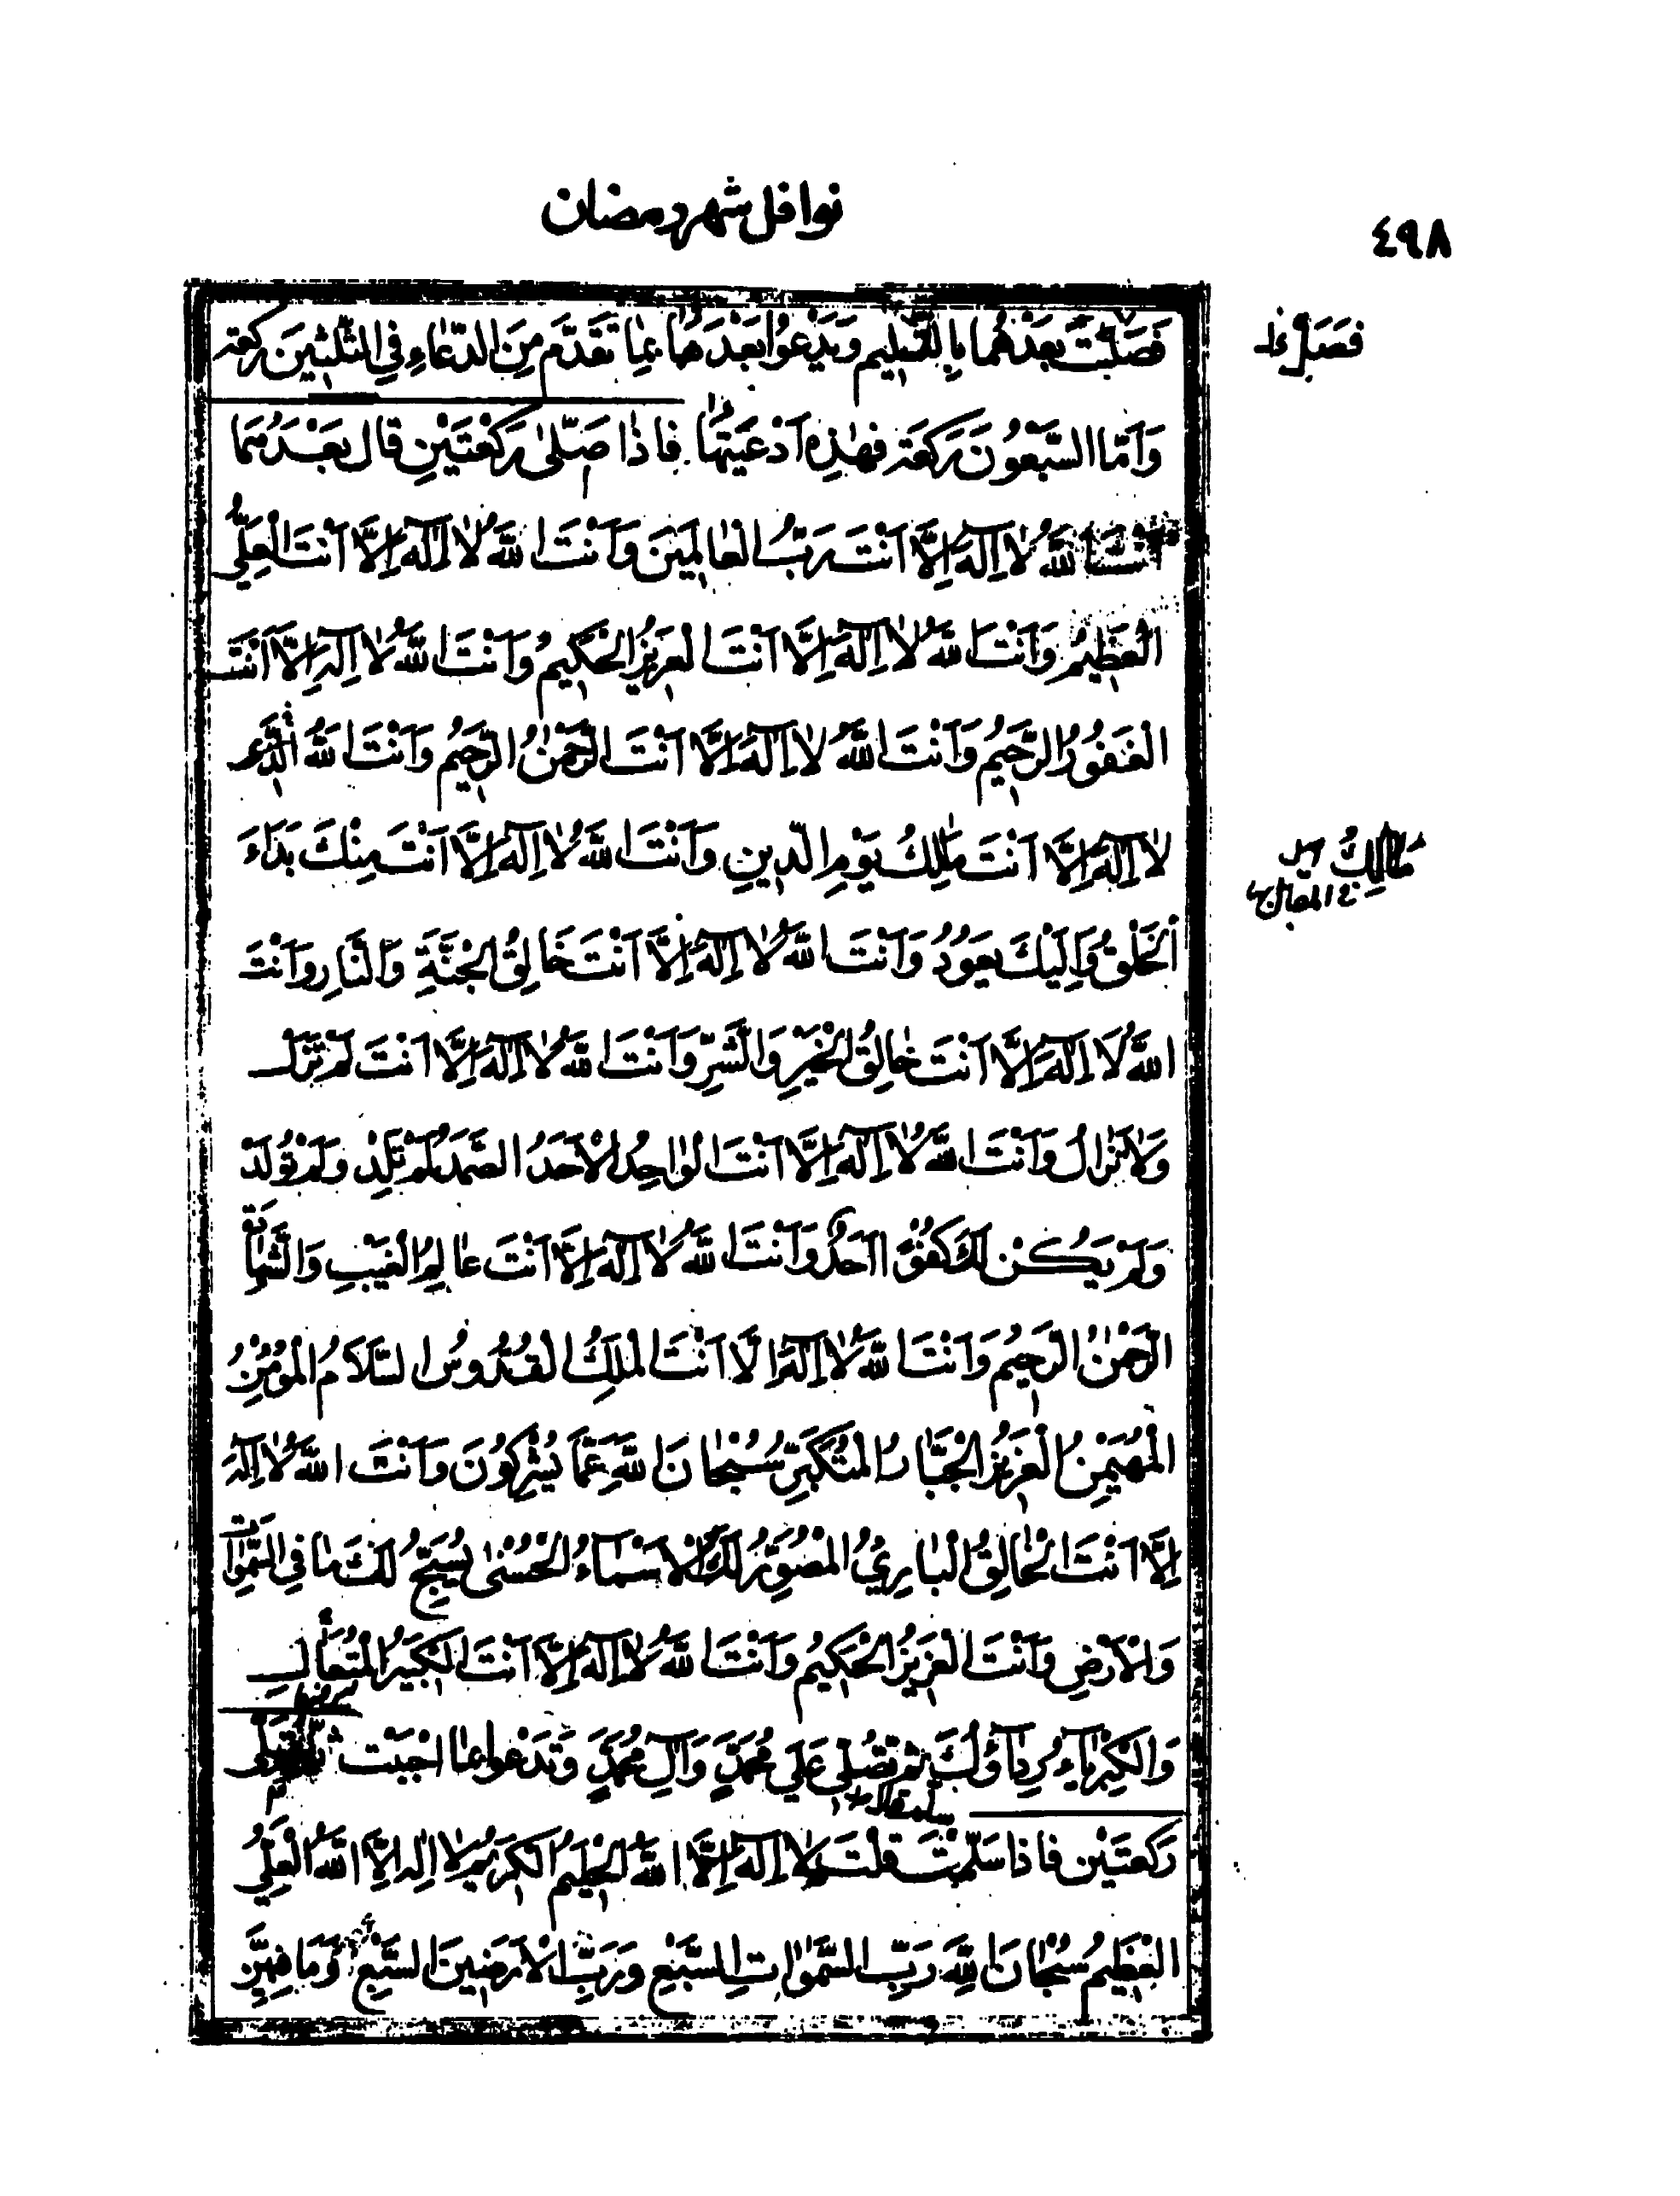 ٤٩٨
نوافل شهر رمضان
فَصَلَّيْتَ بَعْدَهُما بِالتَّسْليمِ وَيَدْعُوا بَعْدَهُمَا بِمَا تَقَدَّمَ مِنَ الدُّعَاءِ فِي الثَّلٰثِينَ رَكعَة
وَاَمَّا السَّبْعُونَ رَكعَة فهٰذِهِ اَدْعِيَتُهَا فَاِذَا صَلّىٰ رَكْعَتَيْنِ قالَ بَعْدَهُمَا
اَنْتَ اللهُ لَا اِلٰهَ اِلَّا اَنْتَ رَبُّ العَالَمِينَ وَاَنْتَ اللهُ لَا اِلٰهَ اِلَّا اَنْتَ الْعَلِيُّ
الْعَظِيمُ وَاَنْتَ اللهُ لَا اِلٰهَ اِلَّا اَنْتَ العَزِيزُ الْحَكِيمُ وَاَنْتَ اللهُ لَا اِلٰهَ اِلَّا اَنْتَ
الْغَفُورُ الرَّحِيمُ وَاَنْتَ اللهُ لَا اِلٰهَ اِلَّا اَنْتَ الرَّحْمٰنُ الرَّحِيمُ وَاَنْتَ اللهُ
لَا اِلٰهَ اِلَّا اَنْتَ مَالِكُ يَوْمِ الدِّينِ وَاَنْتَ اللهُ لَا اِلٰهَ اِلَّا اَنْتَ مِنْكَ بَدَاءَ
الْخَلْقُ وَاِلَيْكَ يَعُودُ وَاَنْتَ اللهُ لَا اِلٰهَ اِلَّا اَنْتَ خَالِقُ الْجَنَّةِ وَالنَّارِ وَاَنْتَ
اللهُ لَا اِلٰهَ اِلَّا اَنْتَ خَالِقُ الْخَيْرِ وَالشَّرِّ وَاَنْتَ اللهُ لَا اِلٰهَ اِلَّا اَنْتَ لَمْ تَزَلْ
وَلَا تَزَالُ وَاَنْتَ اللهُ لَا اِلٰهَ اِلَّا اَنْتَ الْوَاحِدُ الْاَحَدُ الصَّمَدُ لَمْ تَلِدْ وَلَمْ تُولَدْ
وَلَمْ يَكُنْ لَكَ كُفُوًا اَحَدٌ وَاَنْتَ اللهُ لَا اِلٰهَ اِلَّا اَنْتَ عَالِمُ الْغَيْبِ وَالشَّهَادَةِ
الرَّحْمٰنُ الرَّحِيمُ وَاَنْتَ اللهُ لَا اِلٰهَ اِلَّا اَنْتَ الْمَلِكُ القُدُّوسُ السَّلَامُ الْمُؤْمِنُ
الْمُهَيْمِنُ الْعَزِيزُ الْجَبَّارُ المُتَكَبِّرُ سُبْحَانَ اللهِ عَمَّا يُشْرِكُونَ وَاَنْتَ اللهُ لَا اِلٰهَ
اِلَّا اَنْتَ الْخَالِقُ الْبَارِئُ الْمُصَوِّرُ لَكَ الْاَسْمَاءُ الْحُسْنىٰ يُسَبِّحُ لَكَ مَا فِي السَّمٰوَاتِ
وَالْاَرْضِ وَاَنْتَ الْعَزِيزُ الْحَكِيمُ وَاَنْتَ اللهُ لَا اِلٰهَ اِلَّا اَنْتَ الْكَبِيرُ الْمُتَعَالِ
وَالْكِبْرِيَاءُ رِدَاؤُكَ ثُمَّ تُصَلِّي عَلٰي مُحَمَّدٍ وَآلِ مُحَمَّدٍ وَتَدْعُو بِمَا اَحْبَبْتَ
رَكعَتَيْنِ فَاِذَا سَلَّمْتَ قلْتَ لَا اِلٰهَ اِلَّا اللهُ الْحَلِيمُ الْكَرِيمُ لَا اِلٰهَ اِلَّا اللهُ الْعَلِيُّ
الْعَظِيمُ سُبْحَانَ اللهِ رَبِّ السَّمٰوَاتِ السَّبْعِ وَرَبِّ الْاَرَضِينَ السَّبْعِ وَمَا فِيهِنَّ